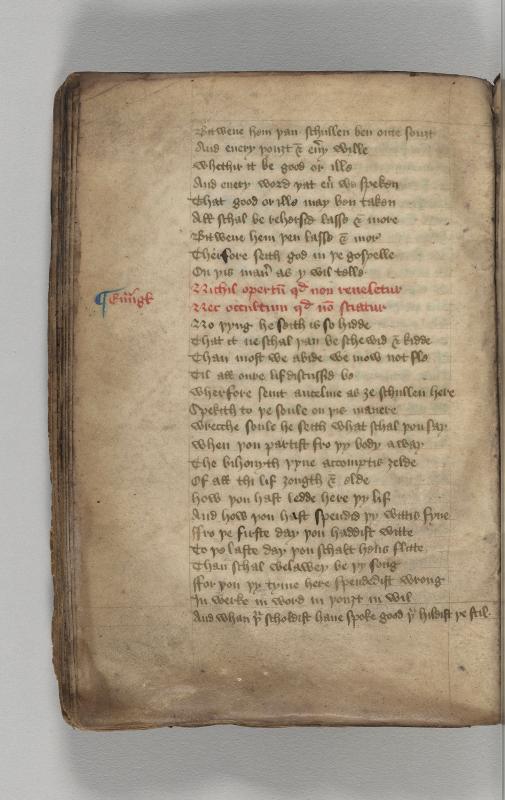 Bitwene hem þan schullen ben oute souȝt
And euery þouȝt & eu͛y wille
Whethir it be good or ille
And euery word þat eu͛ we speken
That good or ille may ben taken
All schal be rehersid lasse & more
Bitwene hem þen lasse & mor
Therfore seith god in þe gospelle
On þis man͛ as y wil telle
Nichil opertū qd̄ non reueletur
¶ Euāgł
Nec occultum qd̄ nō sciatur
No þyng he seith is so hidde
That it ne schal þan be schewid & kidde
Than most we abide we mow not fle
Til all oure lif discussid be
Wherfore seint ancelme as ȝe schullen here
Spekith to þe soule on þis manere
Wrecche soule he seith what schal þou say
When þou partist fro þy body away
The bihouyth þyne accomptis ȝelde
Of all thi lif ȝongth & elde
How þou hast ledde here þy lif
And how þou hast spendid þy wittis fyue
ffro þe furste day þou haddist witte
To þe laste day þou schalt hens flitte
Than schal welawey be þy song
ffor þou þy tyme here spendedist wrong
In werke in word in þouȝt in wil
And whan þ͛ scholdist haue spoke good þ͛ hildist þe stil